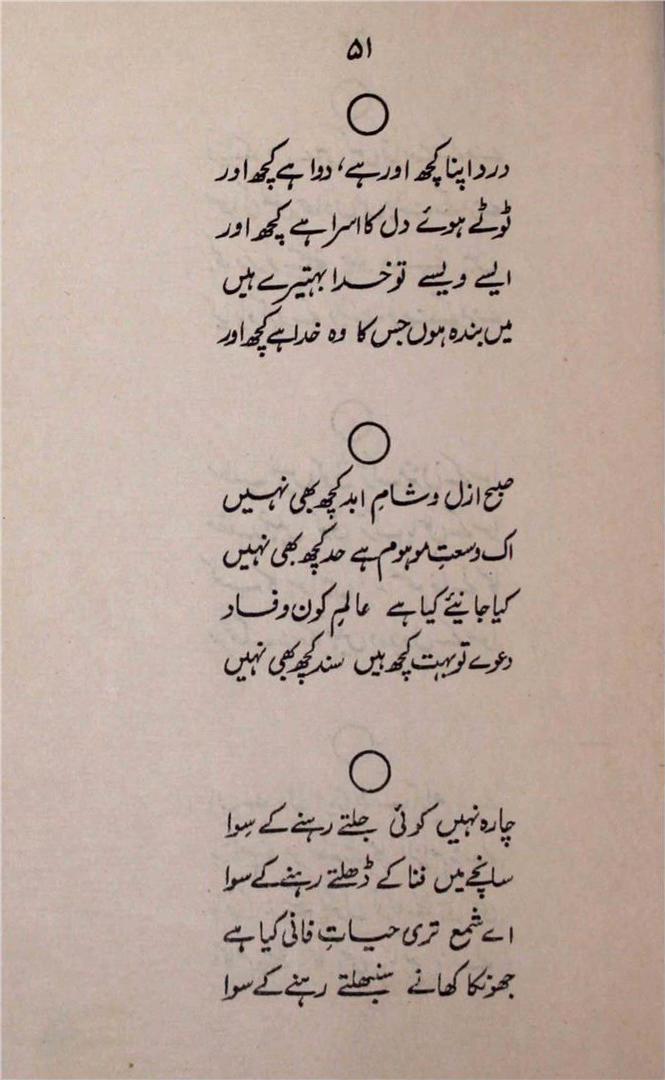 ۵۱
درد اپنا کچھ اور ہے، دوا ہے کچھ اور
ٹوٹے ہوئے دل کا اسرا ہے کچھ اور
ایسے ویسے تو خدا بہتیرے ہیں
میں بندہ ہوں جس کا وہ خدا ہے کچھ اور
صبح ازل و شامِ ابد کچھ بھی نہیں
اک وسعتِ موہوم ہے حد کچھ بھی نہیں
کیا جانیئے کیا ہے عالمِ کون و فساد
دعوے تو بہت کچھ ہیں سند کچھ بھی نہیں
چارہ نہیں کوئی جلتے رہنے کے سِوا
سانچے میں فنا کے ڈھلتے رہنے کے سوا
اے شمع تری حیاتِ فانی کیا ہے
جھونکا کھانے سنبھلتے رہنے کے سوا